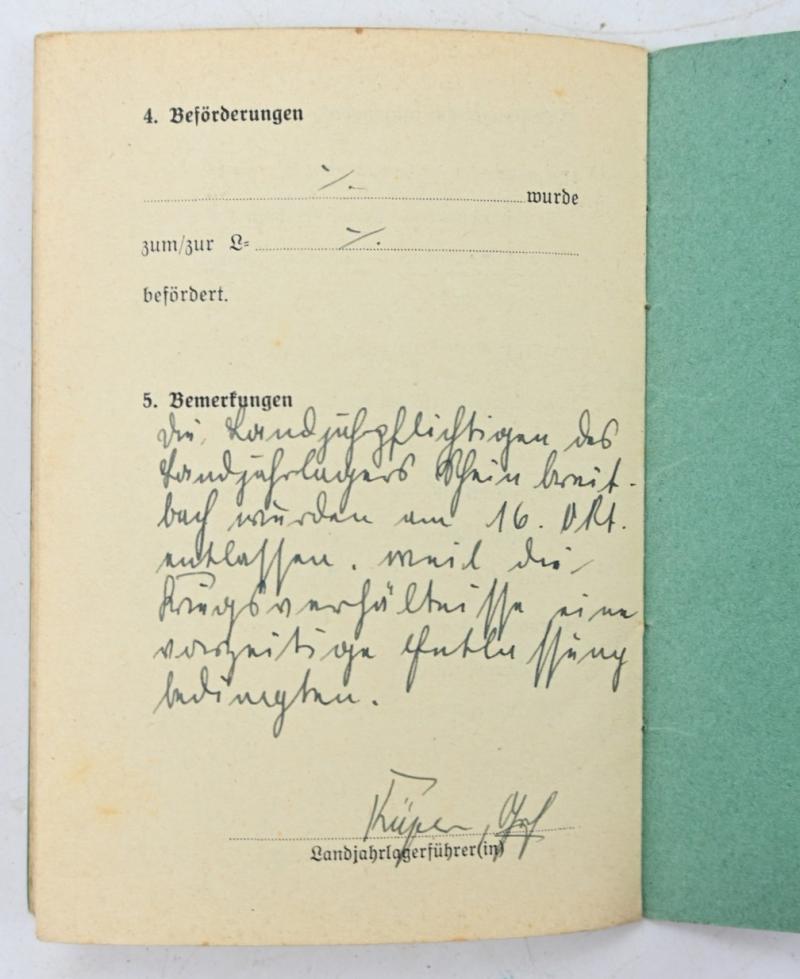 4. Beförderungen
./. wurde
zum/zur L= ./.
befördert.
5. Bemerkungen
Die Landjahrpflichtigen des
Landjahrlagers Rheinbreit-
bach wurden am 16. Okt.
entlassen, weil die
Kriegsverhältnisse eine
vorzeitige Entlassung
bedingten.
Landjahrlagerführer(in)